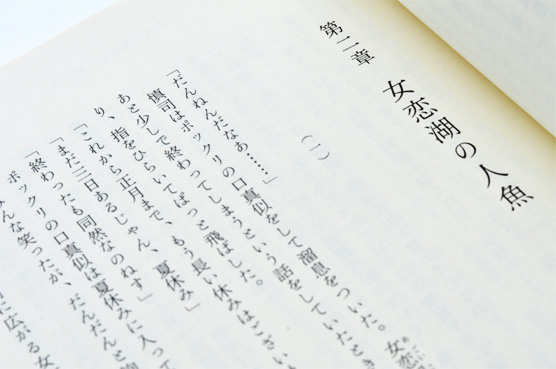 第二章
女恋湖の人魚
（一）
「だんねんだなぁ……」
慎司はポックリの口真似をして溜息をついた。女恋
あと少しで終わってしまうという話をしていたとき
り、指をひらいてぱっと飛ばした。
「これから正月まで、もう長い休みはござい
「まだ三日あるじゃん、夏休み」
「終わったも同然なのねす」
ポックリの口真似は夏休みに入って
みんな笑ったが、だんだんと
に広がる女